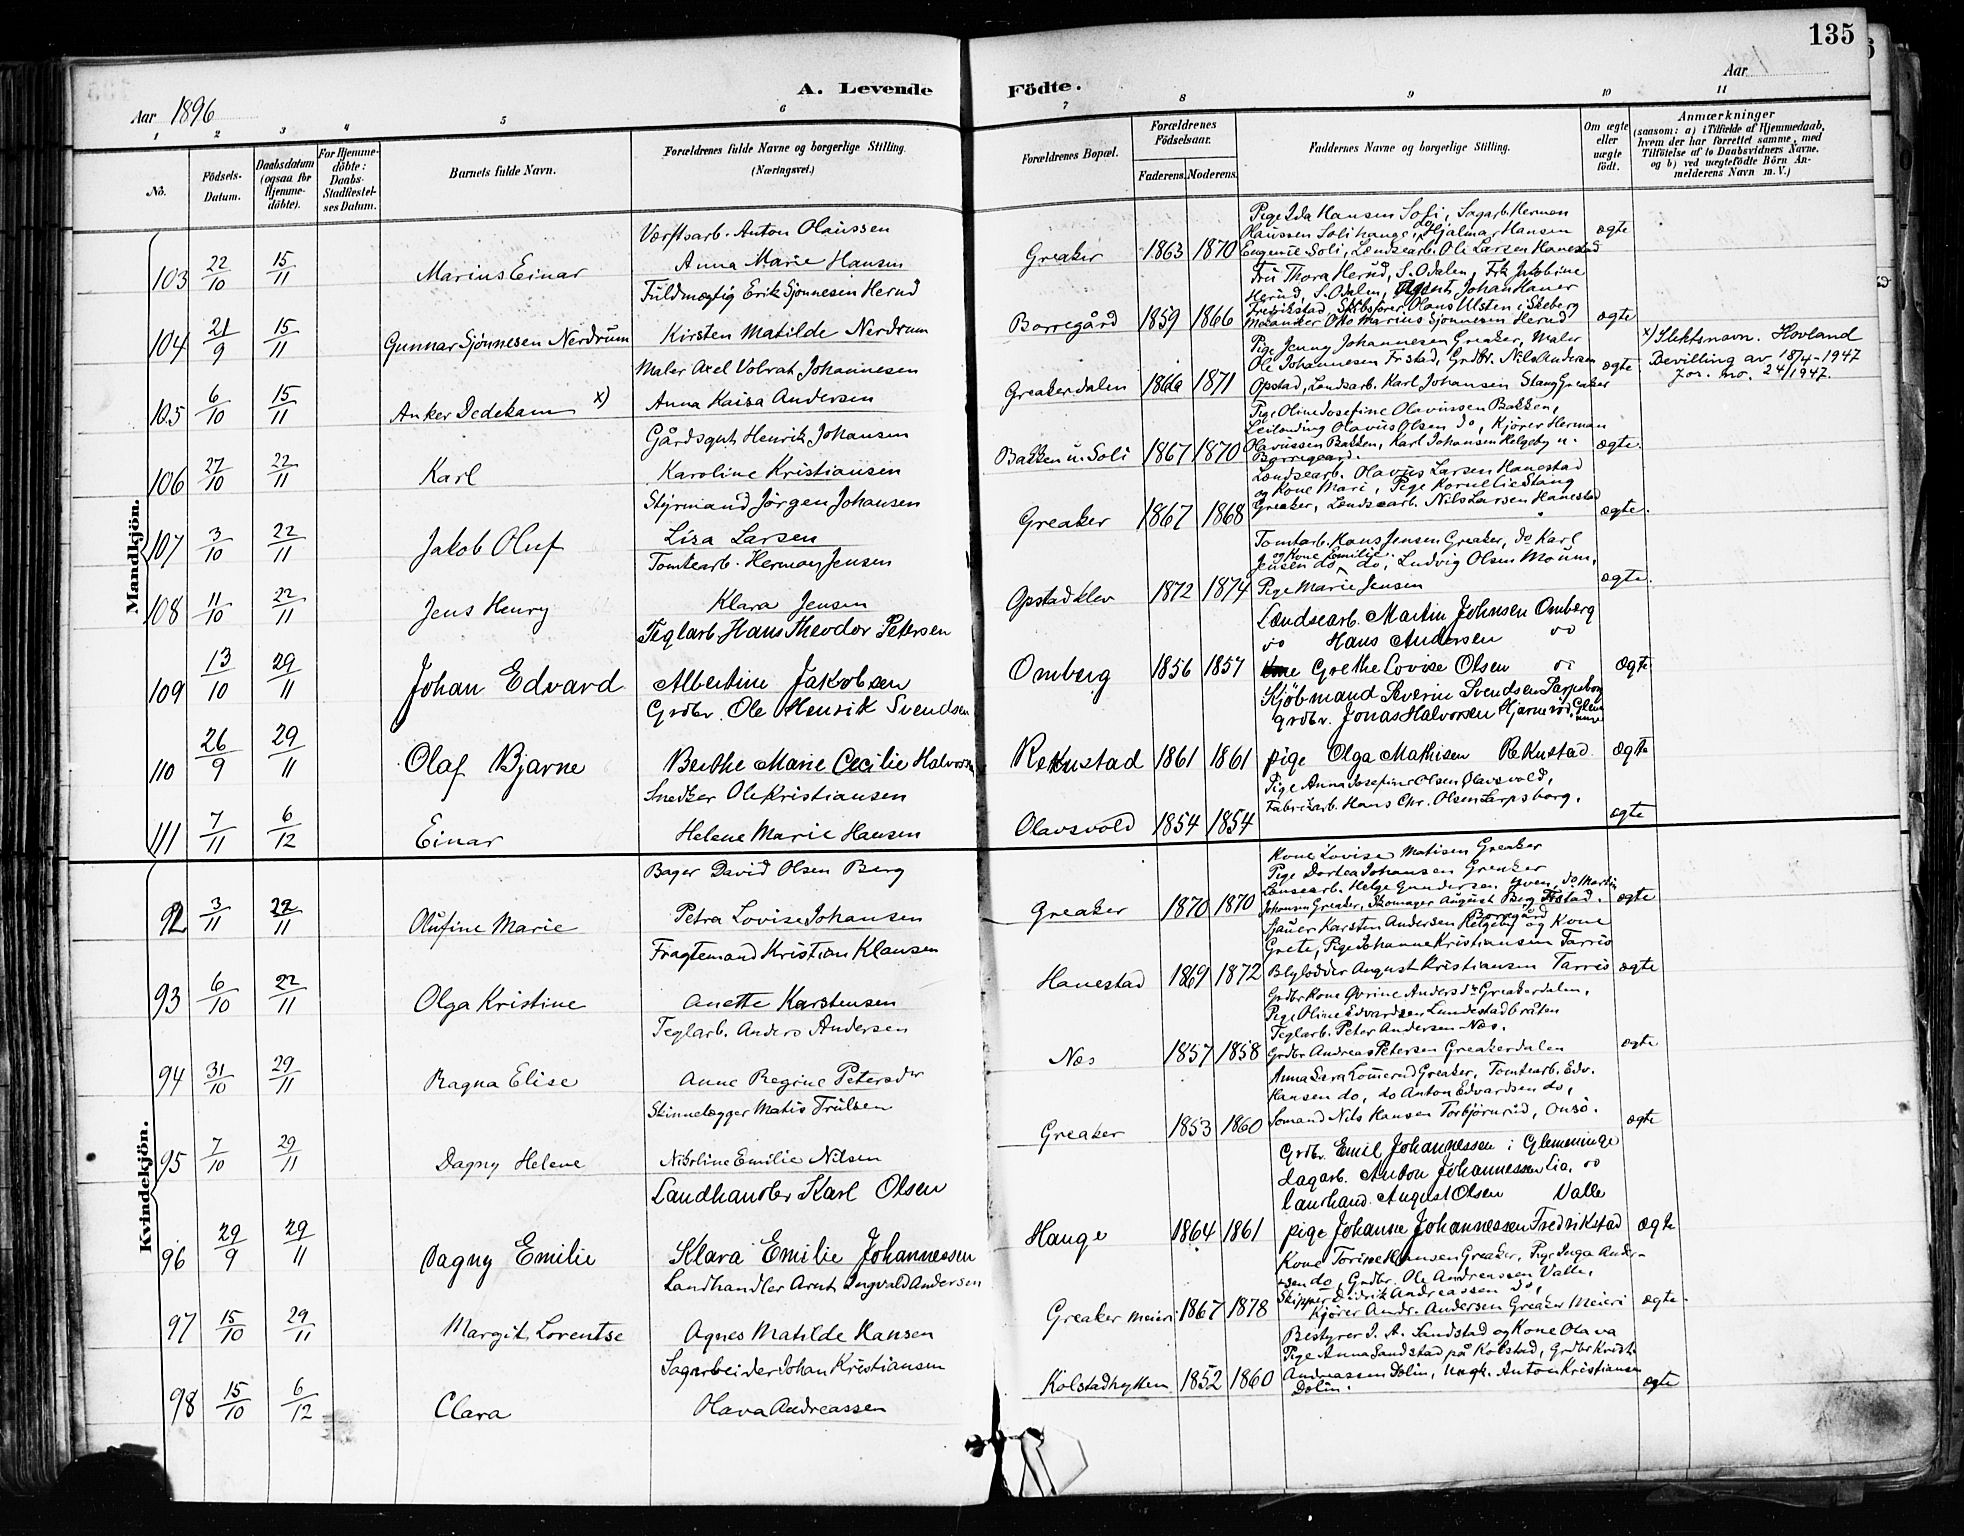 135
Aar 1896
A. Levende Födte.
Aar
1 2 3 4 5 6 7 8 9 10 11
No.
Födsels-Datum.
Daabsdatum (ogsaa for Hjemme-döbte).
For Hjemme-döbte: Daabs-Stadfæstelses Datum.
Barnets fulde Navn.
Forældrenes fulde Navne og borgerlige Stilling. (Næringsvei.)
Forældrenes Bopæl.
Forældrenes Födselsaar.
Faderens. Moderens.
Faddernes Navne og borgerlige Stilling.
Om ægte eller uægte födt.
Anmærkninger
(saasom: a) i Tilfælde af Hjemmedaab, hvem der har forrettet samme, med Tilföielse af to Daabsvidners Navne, og b) ved uegtefödte Börn Anmelderens Navn m. V.)
Mandkjön.
103 22/10 15/11 Marius Einar
Værftsarb. Anton Olaussen
Anna Marie Hansen
Greaker 1863 1870
Pige Ida Hansen Soli, Sagarb. Herman
Olaussen Solihauge, Hjalmar Hansen
Eugenie Soli, Lændsearb. Ole Larsen Hanestad
ægte
104 21/9 15/11 Gunnar Sjönnesen Nerdrum
Fuldmægtig Erik Sjönnesen Herud
Kirsten Matilde Nerdrum
Borregård 1859 1866
Fru Thora Herud, S. Odalen, Frk Jakobine
Herud, S. Odalen, Agent Johan Hauer
Fredrikstad, Skibsförer Olaus Ulsten i Skeberg
Mekaniker Otto Marius Sjonnesen Herud
ægte
105 6/10 15/11 Anker Dedekam x)
Maler Axel Volrat Johannesen
Anna Kaisa Andersen
Greakerdalen 1866 1871
Pige Jenny Johannesen Greaker, Maler
Ole Johannesen Fristad, Grdbr. Nils Andersen
Opstad, Lendsarb. Karl Johansen Stang Greaker
ægte
x) Slektsnavn. Hovland
Bevilling av 18/4-1947
Jor. no. 24/1947.
106 27/10 22/11 Karl
Gårdsgut Henrik Johansen
Karoline Kristiansen
Bakken u. Soli 1867 1870
Pige Oline Josefine Olavussen Bakken,
Leilending Olavus Olsen do, Kjörer Herman
Olavussen Bakken, Karl Johansen Helgeby u.
Borregaard.
ægte.
107 3/10 22/11 Jakob Oluf
Styrmand Jörgen Johansen
Lisa Larsen
Greaker 1867 1868
Lændsearb. Olavus Larsen Hanestad
og Kone Mari, Pige Kornelie Stang
Greaker, Lændsearb. Nils Larsen Hanestad
ægte.
108 11/10 22/11 Jens Henry
Tomtearb. Herman Jensen
Klara Jensen
Opstadklev 1872 1874
Tomtarb. Hans Jensen Greaker, do Karl
Jensen do og Kone Emilie do, Ludvig Olsen Moum,
Pige Marie Jensen
ægte.
109 13/10 29/11 Johan Edvard
Teglarb Hans Theodor Petersen
Albertine Jakobsen
Omberg 1856 1857
Lændsearb. Martin Johnsen Omberg
do Hans Andersen do
Grethe Lovise Olsen do
ægte
110 26/9 29/11 Olaf Bjarne
Grdbr. Ole Henrik Svendsen
Berthe Marie Cecilie Halvorsen
Rekustad 1861 1861
Kjöbmand Severin Svendsen Sarpsborg
grdbr. Jonas Halvorsen Hjarneröd, Glemminge
pige Olga Mathisen Rekustad
ægte
111 7/11 6/12 Einar
Snedker Ole Kristiansen
Helene Marie Hansen
Olavsvold 1854 1854
Pige Anna Josefine Olsen Olavsvold,
Fabrikarb. Hans Chr. Olsen Sarpsborg.
ægte
Kvindekjön.
92 3/11 22/11 Olufine Marie
Bager David Olsen Berg
Petra Lovise Johansen
Greaker 1870 1870
Kone Lovise Matisen Greaker
Pige Dortea Johansen Greaker
Lensearb. Helge Gundersen, do Martin
Johansen Greaker, Skomager August Berg
ægte
93 6/10 22/11 Olga Kristine
Fragtemand Kristian Klausen
Anette Karstensen
Hanestad 1869 1872
Sjauer Karsten Andersen Helgeby og Kone
Grete, Pige Johanne Kristiansen Tarris
August Kristiansen Tarris
ægte
94 31/10 29/11 Ragna Elise
Teglarb. Anders Andersen
Anne Regine Petersdr
Næs 1857 1858
Grdbr Kone Andersdr Greakerdalen,
Pige Oline Edvardsen Lundestadbråten
Teglarb. Peter Andersen Næs.
Grdbr Andreas Petersen Greakerdalen
ægte
95 7/10 29/11 Dagny Helene
Skinnelægger Matis Trulsen
Nikoline Emilie Nilsen
Greaker 1853 1860
Anna Sara Greaker, Tomtearb. Edv.
Hansen do, do Anton Edvardsen do,
Sömand Nils Hansen Torbjörnröd, Onsö.
ægte
96 29/9 29/11 Dagny Emilie
Landhandler Karl Olsen
Klara Emilie Johannessen
Hauge 1864 1861
Grdbr. Emil Johannessen i Glemminge
dagarb. Anton Johannessen Lia, do
landhand. August Olsen Valle
pige Johanne Johannessen Fredrikstad
ægte
97 15/10 29/11 Margit Lorentse
Landhandler Arnt Ingvald Andersen
Agnes Matilde Hansen
Greaker Meieri 1867 1878
Kone Torine Hansen Greaker, Pige Inga Andersen
do, Grdbr. Ole Andreassen Valle,
Skipper Didrik Andreassen do,
Kjörer Andr. Andersen Greaker Meieri
ægte.
98 15/10 6/12 Clara
Sagarbeider Johan Kristiansen
Olava Andreassen
Kolstadhytten 1852 1860
Bestyrer J. A. Sandstad og Kone Olava
Pige Anna Sandstad på Kolstad, Grdbr
Andreassen Dolin, Ungk. Anton Kristiansen
Dolin.
ægte